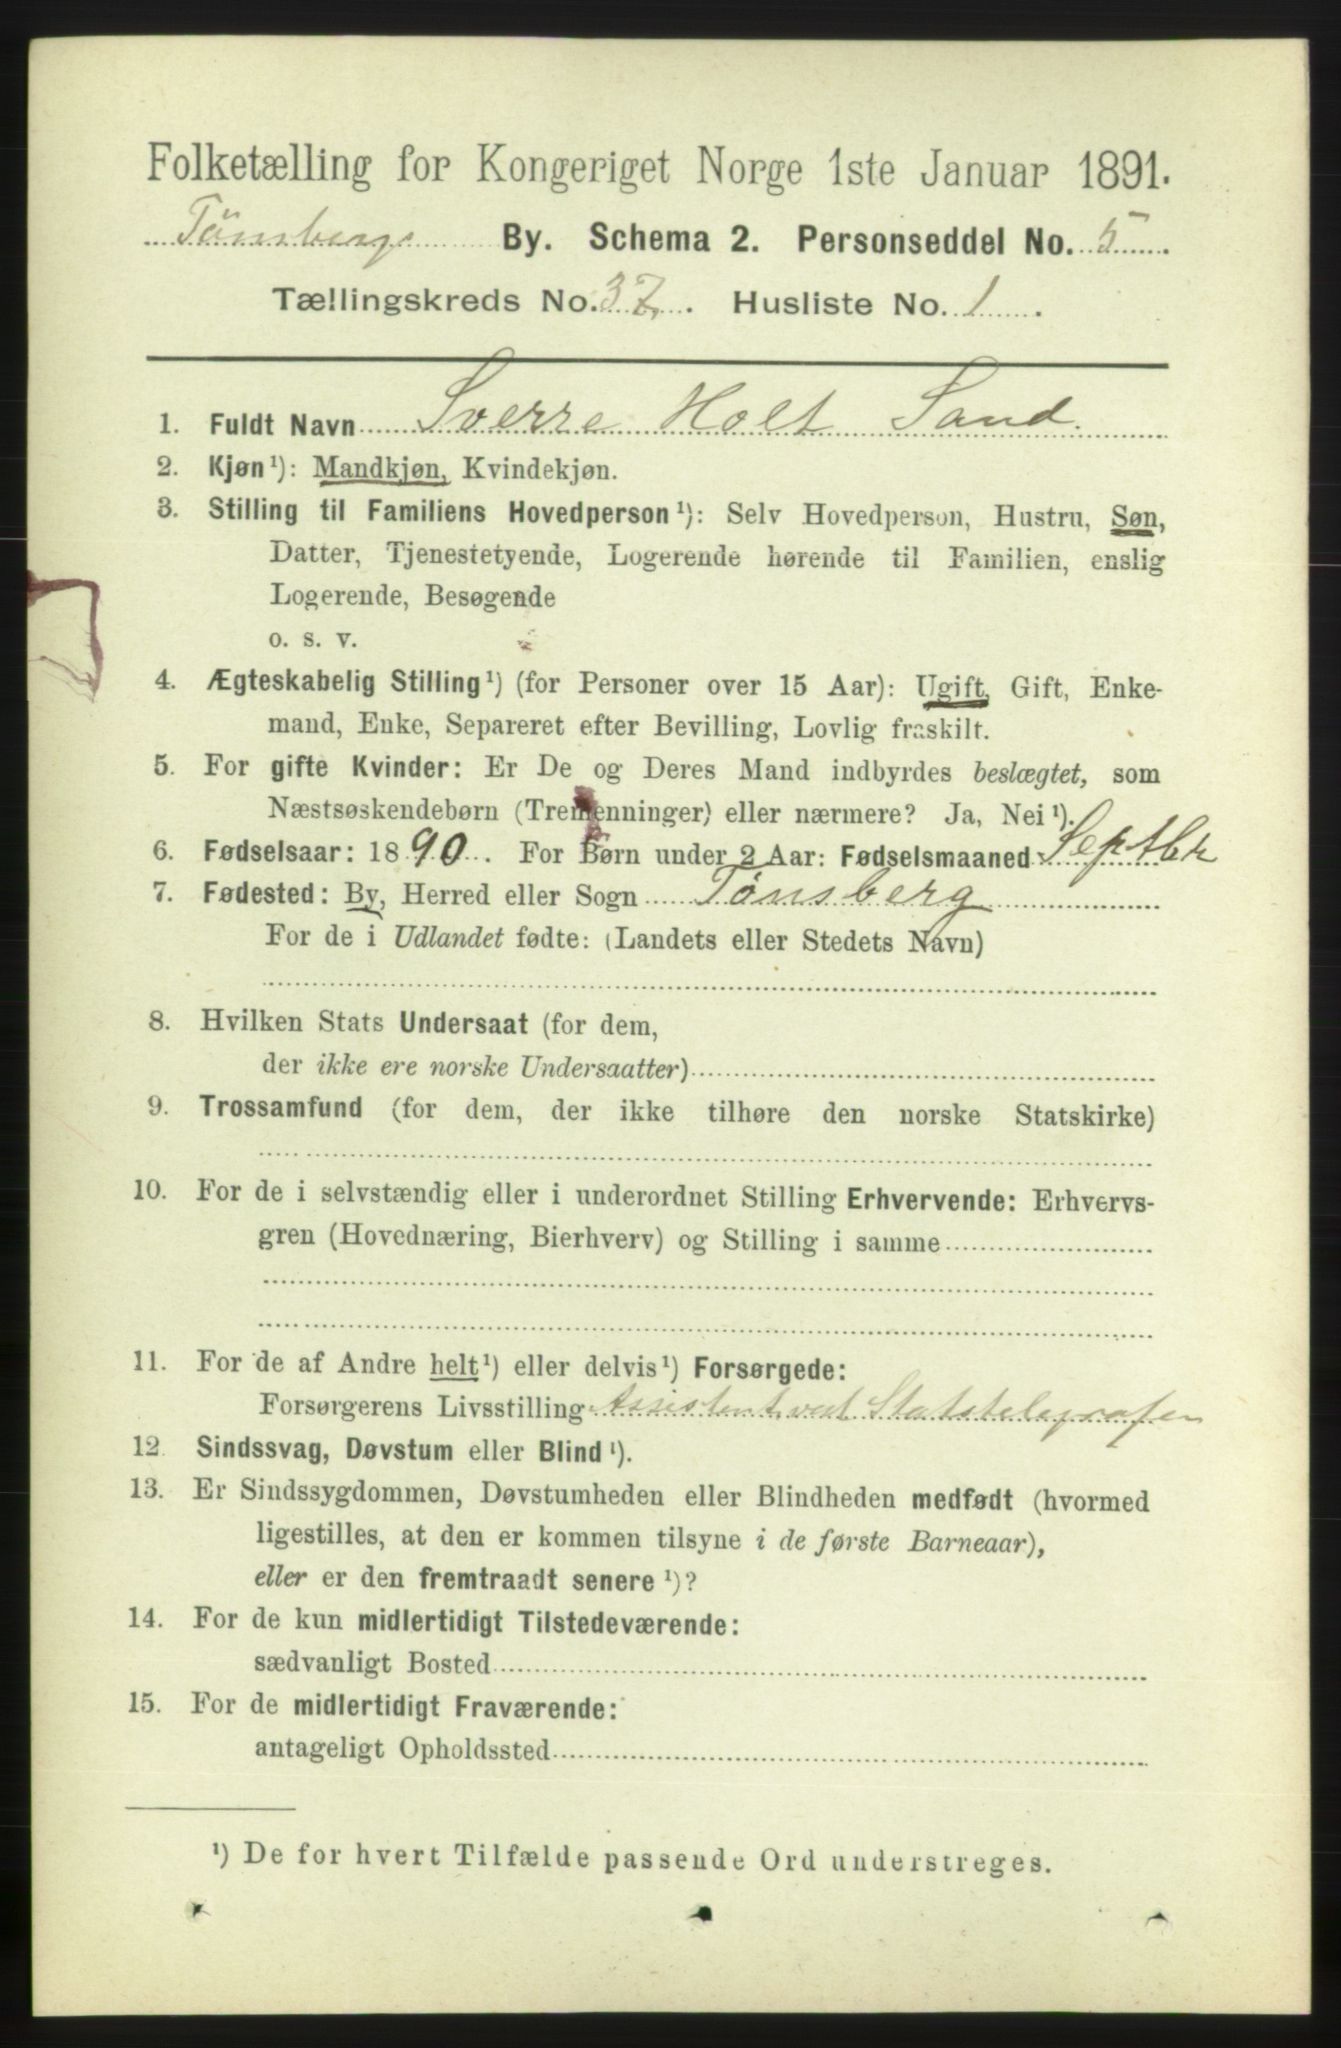 Folketælling for Kongeriget Norge 1ste Januar 1891.
Tönsbergs By. Schema 2. Personseddel No. 5.
Tællingskreds No. 37. Husliste No. 1.
1. Fuldt Navn Sverre Holt Sand.
2. Kjøn ¹): Mandkjøn, Kvindekjøn.
3. Stilling til Familiens Hovedperson ¹): Selv Hovedperson, Hustru, Søn,
Datter, Tjenestetyende, Logerende hørende til Familien, enslig
Logerende, Besøgende
o. s. v.
4. Ægteskabelig Stilling ¹) (for Personer over 15 Aar): Ugift, Gift, Enke-
mand, Enke, Separeret efter Bevilling, Lovlig fraskilt.
5. For gifte Kvinder: Er De og Deres Mand indbyrdes beslægtet, som
Næstsøskendebørn (Tremenninger) eller nærmere? Ja, Nei ¹).
6. Fødselsaar: 1890. For Børn under 2 Aar: Fødselsmaaned Septbr
7. Fødested: By, Herred eller Sogn Tønsberg
For de i Udlandet fødte: (Landets eller Stedets Navn)
8. Hvilken Stats Undersaat (for dem,
der ikke ere norske Undersaatter)
9. Trossamfund (for dem, der ikke tilhøre den norske Statskirke)
10. For de i selvstændig eller i underordnet Stilling Erhvervende: Erhvervs-
gren (Hovednæring, Bierhverv) og Stilling i samme
11. For de af Andre helt ¹) eller delvis ¹) Forsørgede:
Forsørgerens Livsstilling Assistent ved Statstelegrafen
12. Sindssvag, Døvstum eller Blind ¹).
13. Er Sindssygdommen, Døvstumheden eller Blindheden medfødt (hvormed
ligestilles, at den er kommen tilsyne i de første Barneaar),
eller er den fremtraadt senere ¹)?
14. For de kun midlertidigt Tilstedeværende:
sædvanligt Bosted
15. For de midlertidigt Fraværende:
antageligt Opholdssted
¹) De for hvert Tilfælde passende Ord understreges.